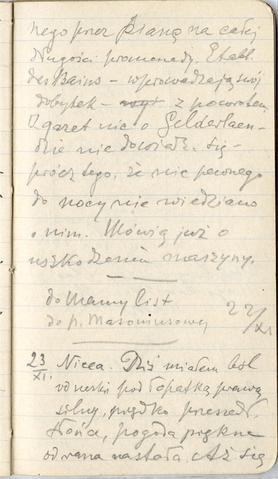 nego przez pianę na całej
długości promenady. Etabl.
des Bains – wprowadzają swój
dobytek – z powrotem
Z gazet nic o Gelderlaen-
dzie nie dowiedz. się –
prócz tego, że nic pewnego
do nocy nie wiedziano
o nim. Mówią już o
uszkodzeniu maszyny.
do Mamy list
do p. 22/XI
23/XI. Nicea. Dziś miałem ból
od nerki pod łopatką prawą
silny, prędko przeszedł.
Słońce, pogoda piękna
od rana nastała. Aż się